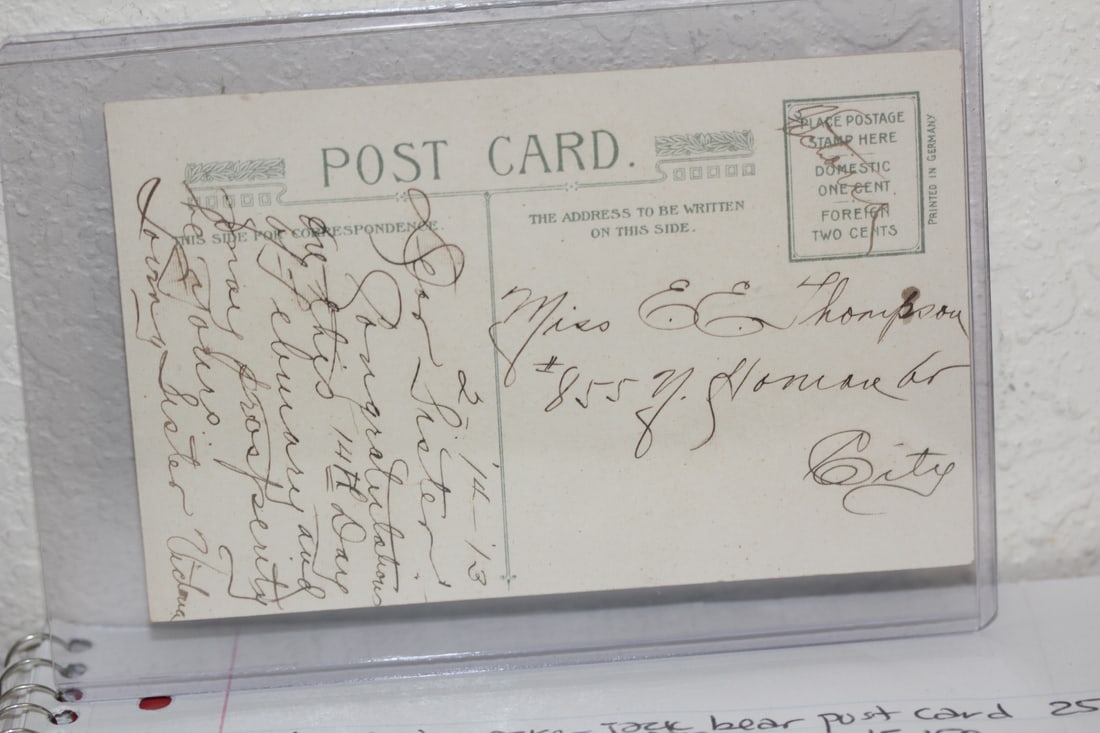 POST CARD.
THIS SIDE FOR CORRESPONDENCE.
THE ADDRESS TO BE WRITTEN
ON THIS SIDE.
PLACE POSTAGE
STAMP HERE
DOMESTIC
ONE CENT
FOREIGN
TWO CENTS
PRINTED IN GERMANY
2-14-13
Dear Sister
Congratulations
on this 14th Day
of February and
may prosperity
be yours.
Loving Sister
Miss E.E. Thompson
#855 N.
City
Jack bear post card 25